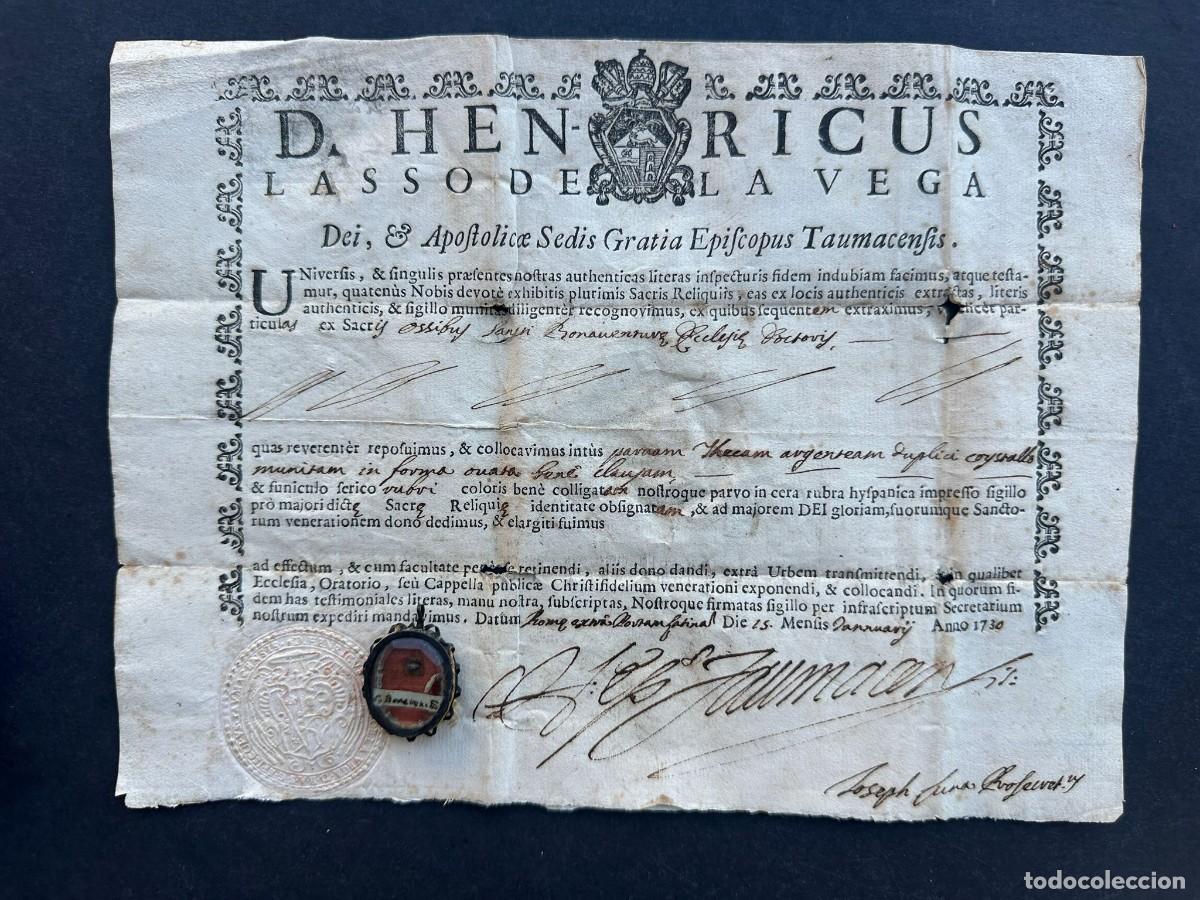 D. HENRICUS
LASSO DE LA VEGA
Dei, & Apoſtolicæ Sedis Gratia Epiſcopus Taumacenſis.
UNiverſis, & ſingulis præſentes noſtras authenticas literas inſpecturis fidem indubiam facimus, atque teſta-
mur, quatenùs Nobis devotè exhibitis plurimis Sacris Reliquiis, eas ex locis authenticis extractas, literis
authenticis, & ſigillo munitas diligenter recognovimus, ex quibus ſequentem extraximus, videlicèt par-
ticulas ex Sacris Ossibus Sancti Bonaventurę Ecclesię Doctoris,
quas reverentèr repoſuimus, & collocavimus intùs parvam Thecam argenteam duplici crystallo
munitam in forma ovata benè clausam,
& funiculo ſerico rubri coloris benè colligatam noſtroque parvo in cera rubra hyſpanica impreſſo ſigillo
prò majori dictę Sacrę Reliquię identitate obſignatam, & ad majorem DEI gloriam, ſuorumque Sancto-
rum venerationem dono dedimus, & elargiti fuimus
ad effectum, & cum facultate penès ſe retinendi, aliis dono dandi, extrà Urbem tranſmittendi, & in qualibet
Eccleſia, Oratorio, ſeù Cappella publicæ Chriſtifidelium venerationi exponendi, & collocandi. In quorum fi-
dem has teſtimoniales literas, manu noſtra, ſubſcriptas, Noſtroque firmatas ſigillo per infraſcriptum Secretarium
noſtrum expediri mandavimus. Datum Romę extrà Die 15. Menſis Jannuarij Anno 1730
Joseph Luna Prosecret.us
todocoleccion